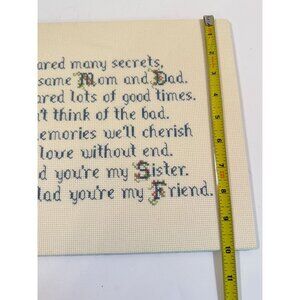 ared many secrets,
same Mom and Dad.
ared lots of good times.
't think of the bad.
emories we'll cherish
love without end.
d you're my Sister.
lad you're my Friend.